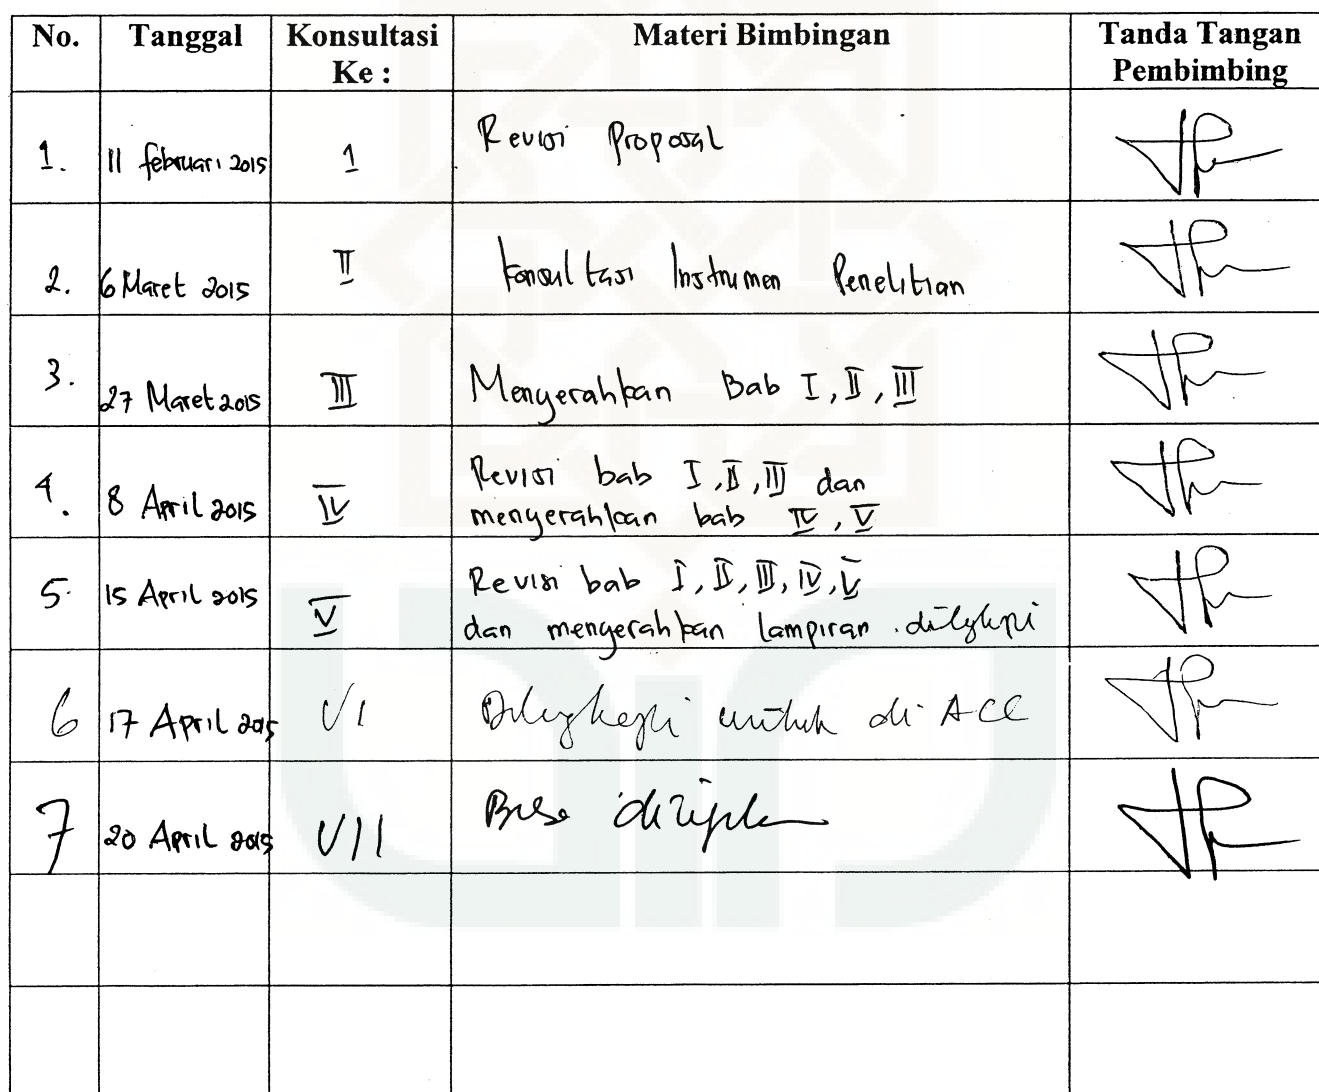 No. Tanggal Konsultasi Ke : Materi Bimbingan Tanda Tangan Pembimbing
1. 11 februari 2015 1 Revisi Proposal
2. 6 Maret 2015 II Konsultasi Instrumen Penelitian
3. 27 Maret 2015 III Menyerahkan Bab I, II, III
4. 8 April 2015 IV Revisi bab I, II, III dan
menyerahkan bab IV, V
5. 15 April 2015 V Revisi bab I, II, III, IV, V
dan menyerahkan lampiran. dilengkapi
6 17 April 2015 VI Dilengkapi untuk di ACC
7 20 April 2015 VII Bisa